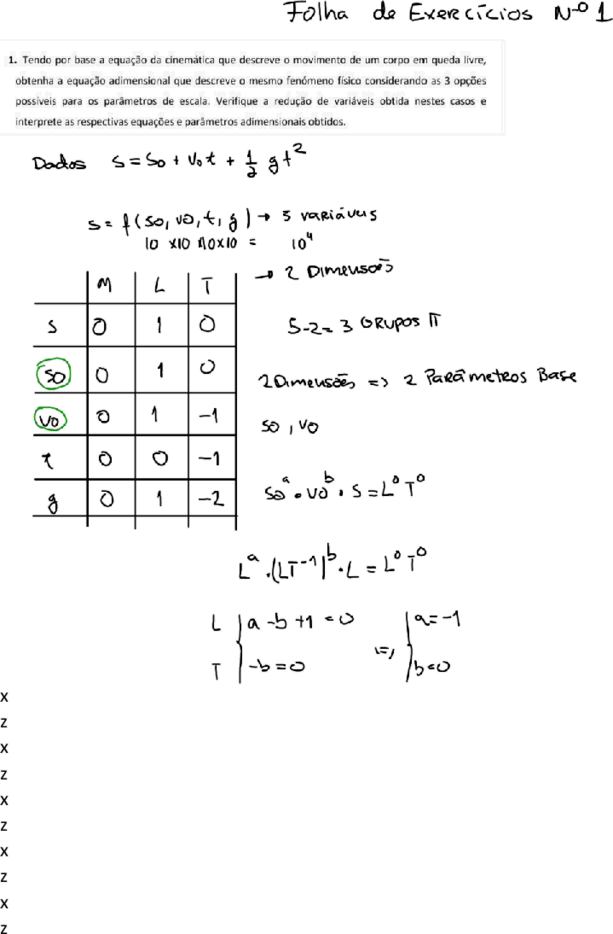 Folha de Exercícios Nº 1
1. Tendo por base a equação da cinemática que descreve o movimento de um corpo em queda livre,
obtenha a equação adimensional que descreve o mesmo fenómeno físico considerando as 3 opções
possíveis para os parâmetros de escala. Verifique a redução de variáveis obtida nestes casos e
interprete as respectivas equações e parâmetros adimensionais obtidos.
Dados s = so + vo t + 1/2 g t²
s = f(so, vo, t, g) → 5 variáveis
10 x10 x10x10 = 10⁴
→ 2 Dimensões
M L T
s 0 1 0
5-2 = 3 Grupos π
so 0 1 0
2 Dimensões => 2 Parâmetros Base
vo 0 1 -1
so, vo
t 0 0 -1
g 0 1 -2
so^a . vo^b . s = L⁰ T⁰
L^a . (LT⁻¹)^b . L = L⁰ T⁰
L { a - b + 1 = 0 => { a = -1
T { -b = 0 { b = 0
x
z
x
z
x
z
x
z
x
z